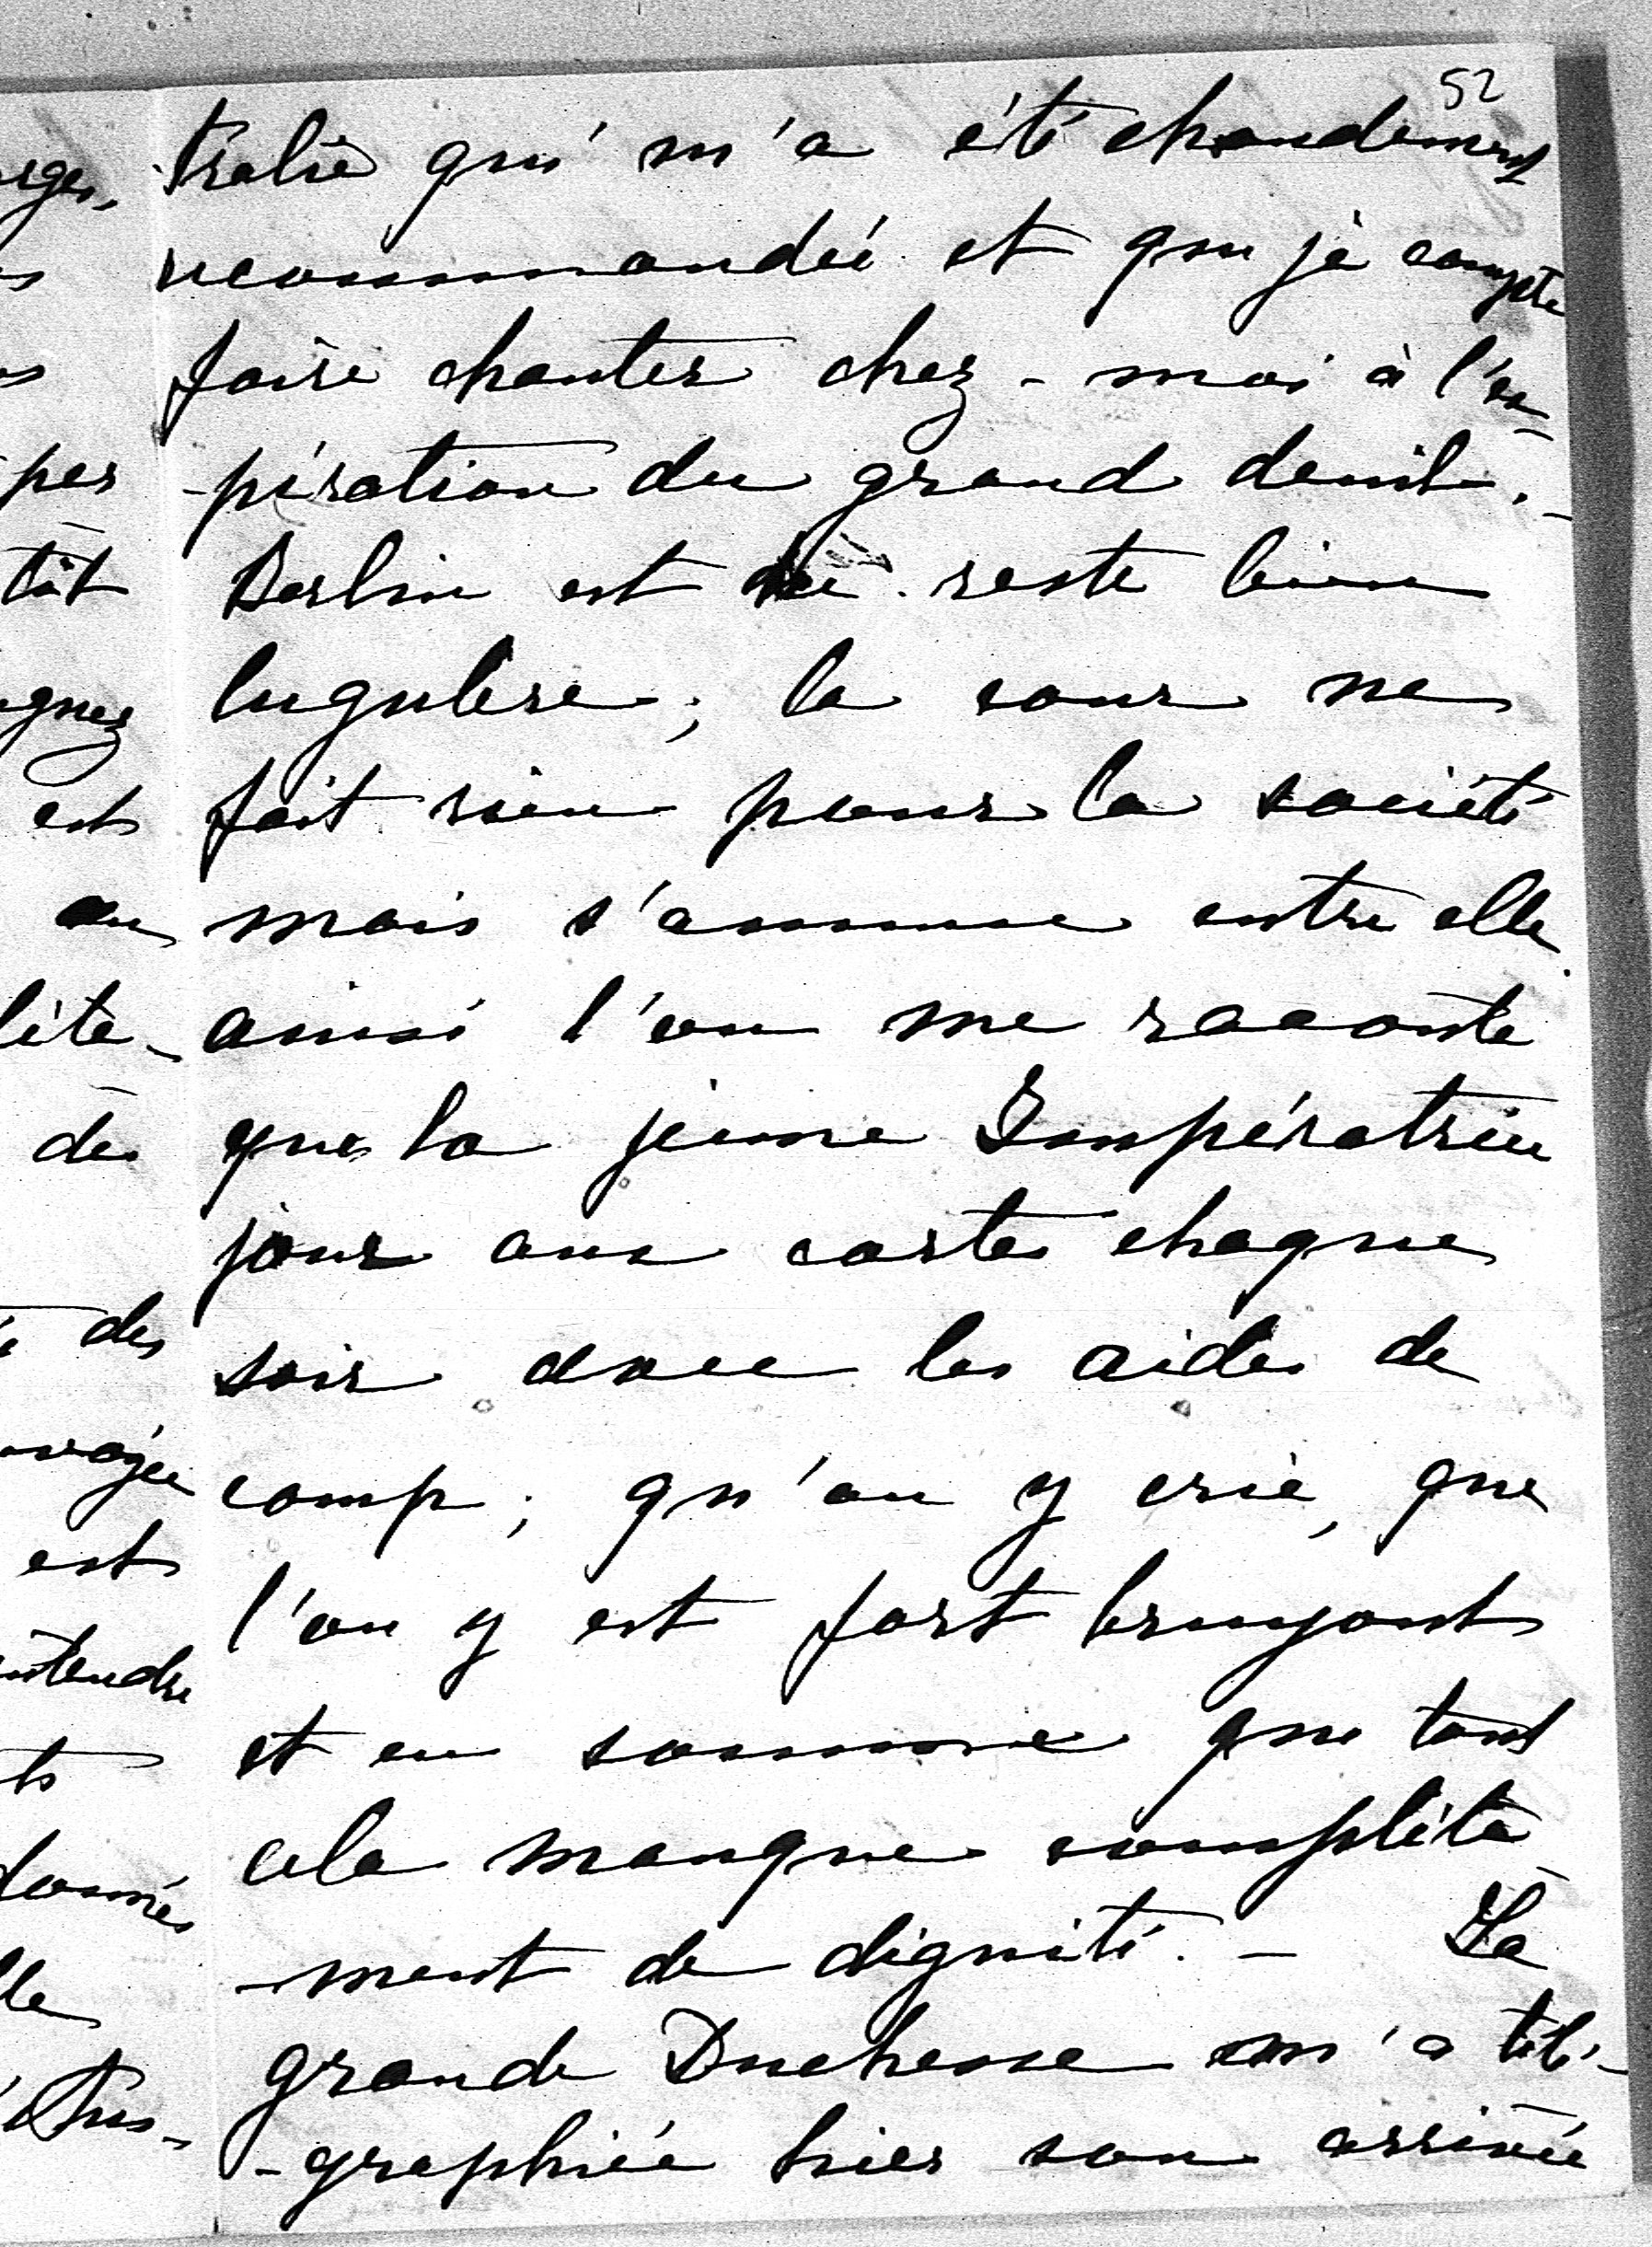 52
tralie qui m'a été chaudement
recommandée et que je compte
faire chanter chez-moi à l'ex-
-piration du grand deuil.-
Berlin est du reste bien
lugubre; la cour ne
fait rien pour la société
mais s'amuse entre elle
ainsi l'on me raconte
que la jeune Impératrice
joue aux cartes chaque
soir avec les aides de
camp; qu'on y crie, que
l'on y est fort bruyant
et en somme que tout
cela manque complète
-ment de dignité. - La
grande Duchesse m'a télé-
-graphiée hier son arrivée
per
tôt
gnez
est
au
lète-
de
des
voyée
est
entendre
donnés
le
Aus-